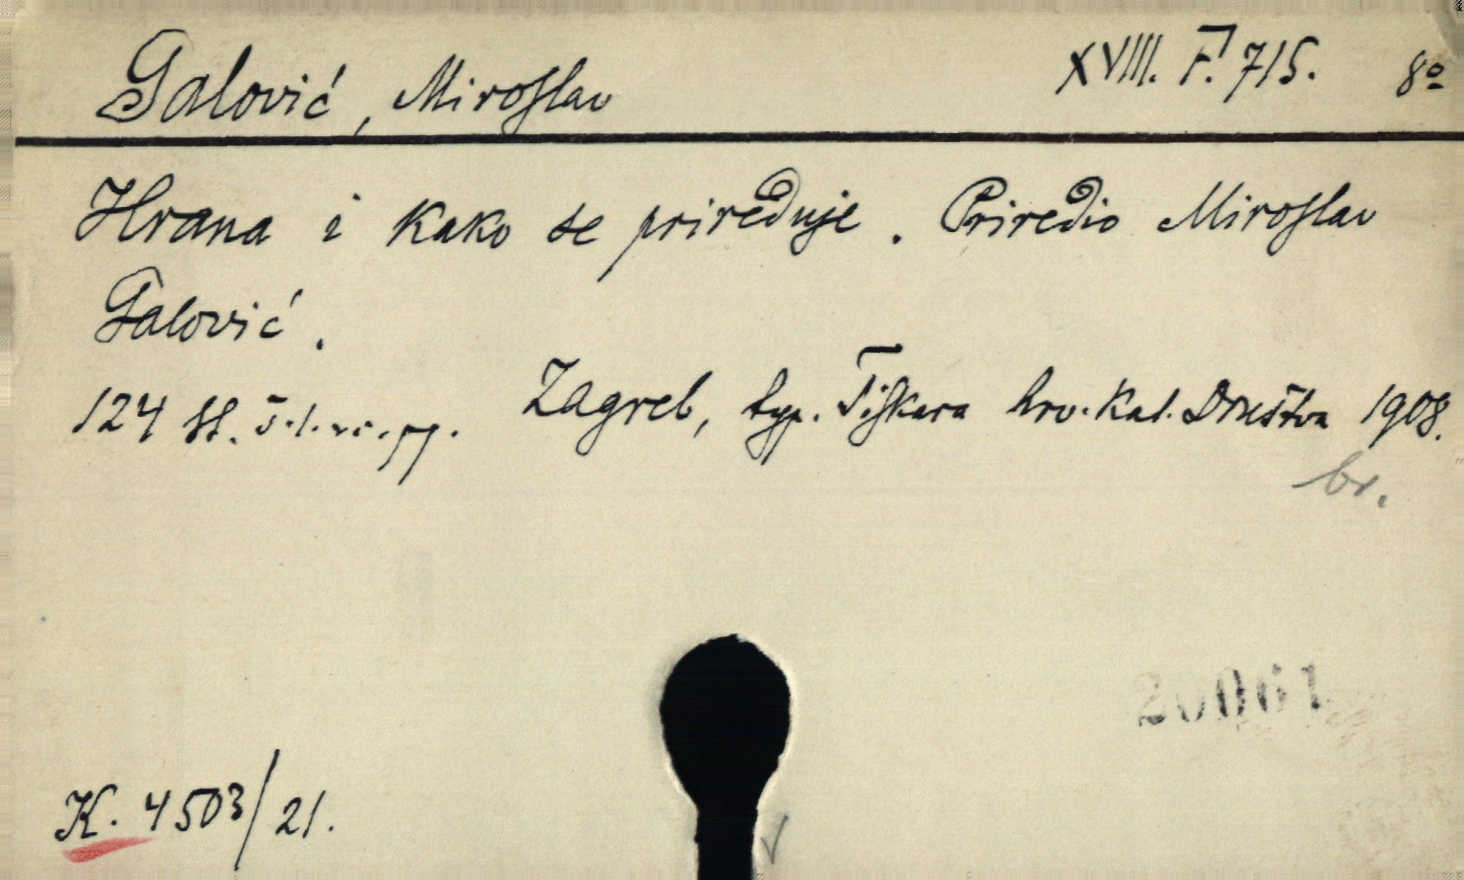 Galović, Miroslav
XVIII. F. 715. 8º
Hrana i kako se priređuje. Priredio Miroslav
Galović.
124 st. Zagreb, typ. Tiskara hrv. kat. Društva 1908.
br.
20061
K. 4503/21.